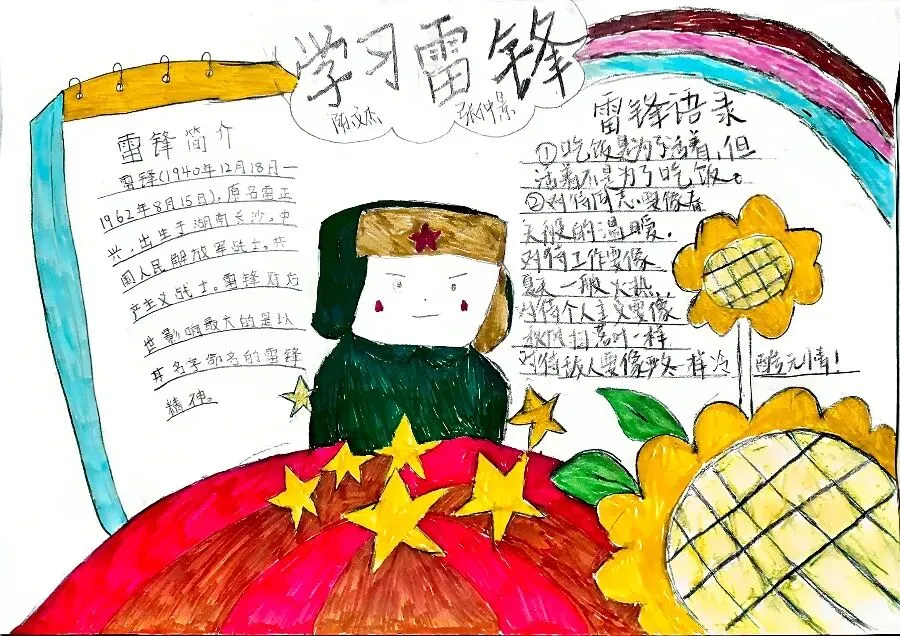 学习雷锋
陈文杰 张仲景
雷锋简介
雷锋(1940年12月18日-
1962年8月15日),原名雷正
兴,出生于湖南长沙。中
国人民解放军战士。共
产主义战士。雷锋对后
世影响最大的是以
其名字命名的雷锋
精神。
雷锋语录
①吃饭是为了活着,但
活着不是为了吃饭。
②对待同志要像春
天般的温暖。
对待工作要像
夏天一般火热,
对待个人主义要像
秋风扫落叶一样
对待敌人要像严冬一样冷 酷无情!